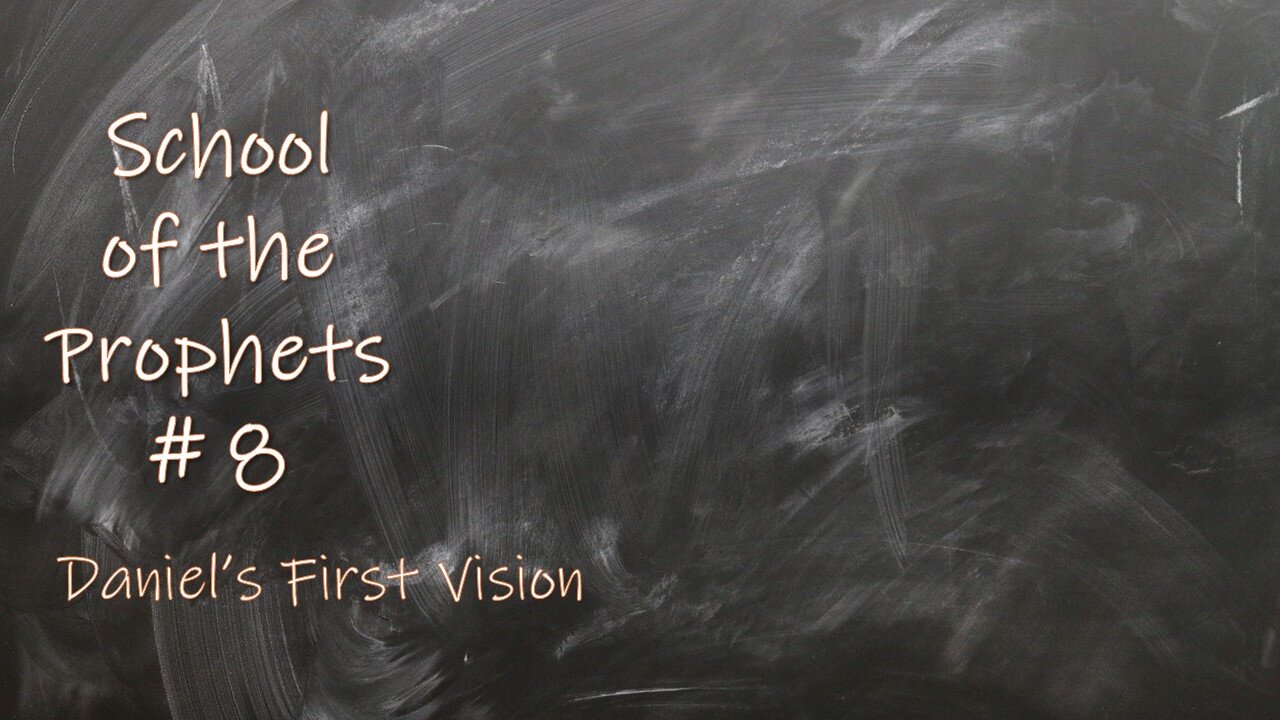 School
of the
Prophets
# 8
Daniel's First Vision